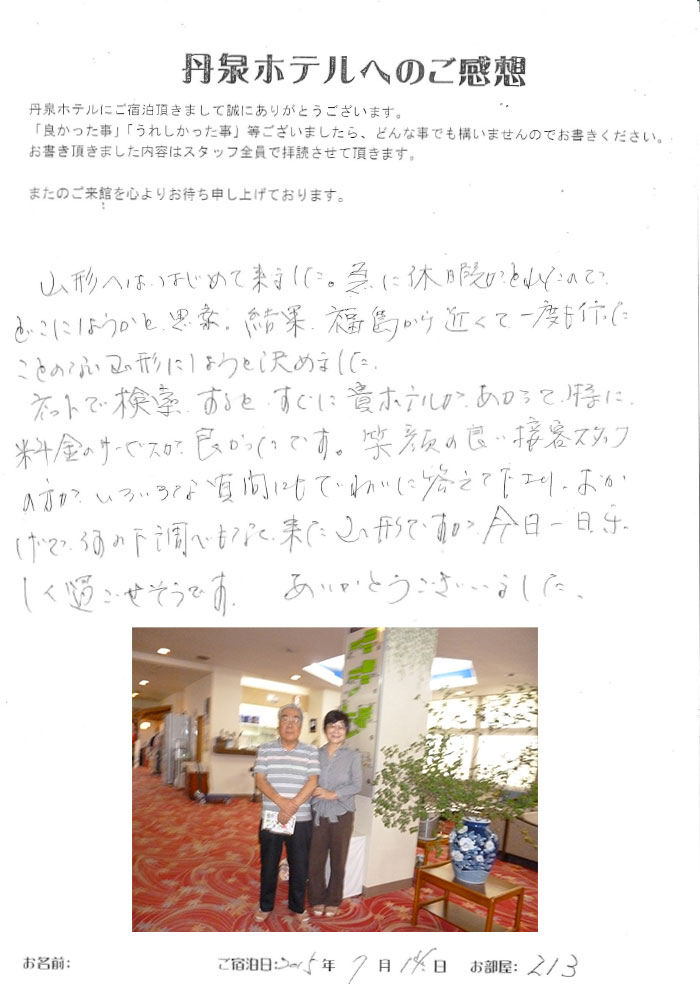 丹泉ホテルへのご感想
丹泉ホテルにご宿泊頂きまして誠にありがとうございます。
「良かった事」「うれしかった事」等ございましたら、どんな事でも構いませんのでお書きください。
お書き頂きました内容はスタッフ全員で拝読させて頂きます。
またのご来館を心よりお待ち申し上げております。
山形へははじめて来ました。急に休暇がとれたので、
どこにしようかと思案。結果、福島から近くて一度も行った
ことのない山形にしようと決めました。
ネットで検索すると、すぐに貴ホテルがあがって、特に
料金のサービスが良かったです。笑顔の良い接客スタッフ
の方が、いろいろな質問にもていねいに答えて下さり、おか
げで、何の下調べもなく来た山形ですが、今日一日、楽
しく過ごせそうです。 ありがとうございました。
お名前: ご宿泊日:2015年 7月 日 お部屋: 213